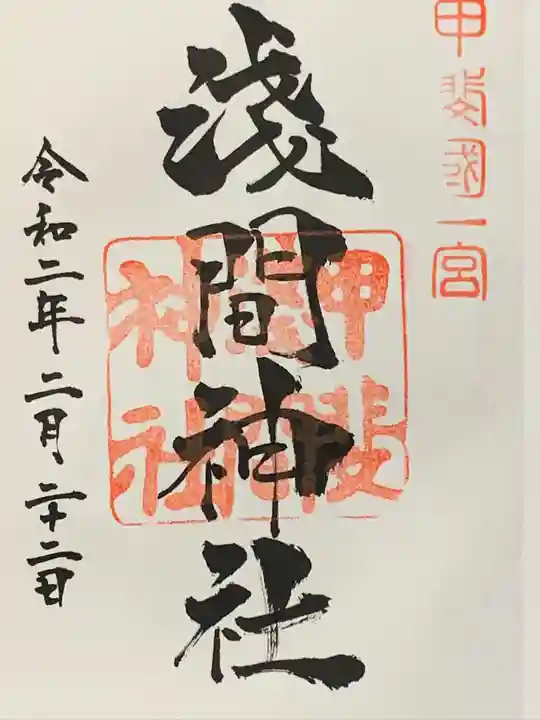 甲斐国一宮
浅間神社
甲斐
浅間
神社
令和二年二月二十二日